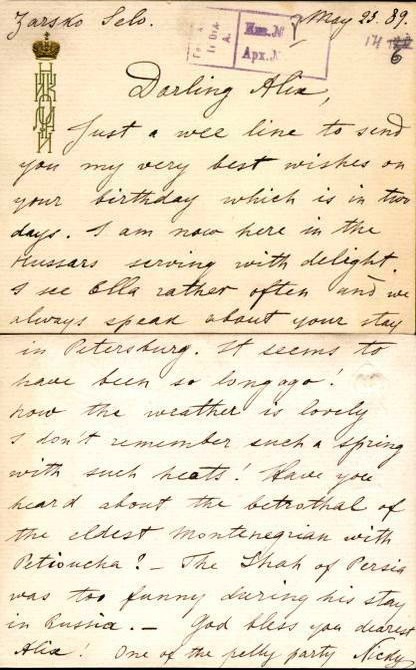 Zarsko Selo. May 23. 89.
Инв. №
Арх. №
14
6
Darling Alix,
Just a wee line to send
you my very best wishes on
your birthday which is in two
days. I am now here in the
Hussars serving with delight.
I see Ella rather often and we
always speak about your stay
in Petersburg. It seems to
have been so long ago!
Now the weather is lovely
I don't remember such a spring
with such heats! Have you
heard about the betrothal of
the eldest Montenegrian with
Petioucha? — The Shah of Persia
was too funny during his stay
in Russia. — God bless you dearest
Alix! One of the pelly party Nicky